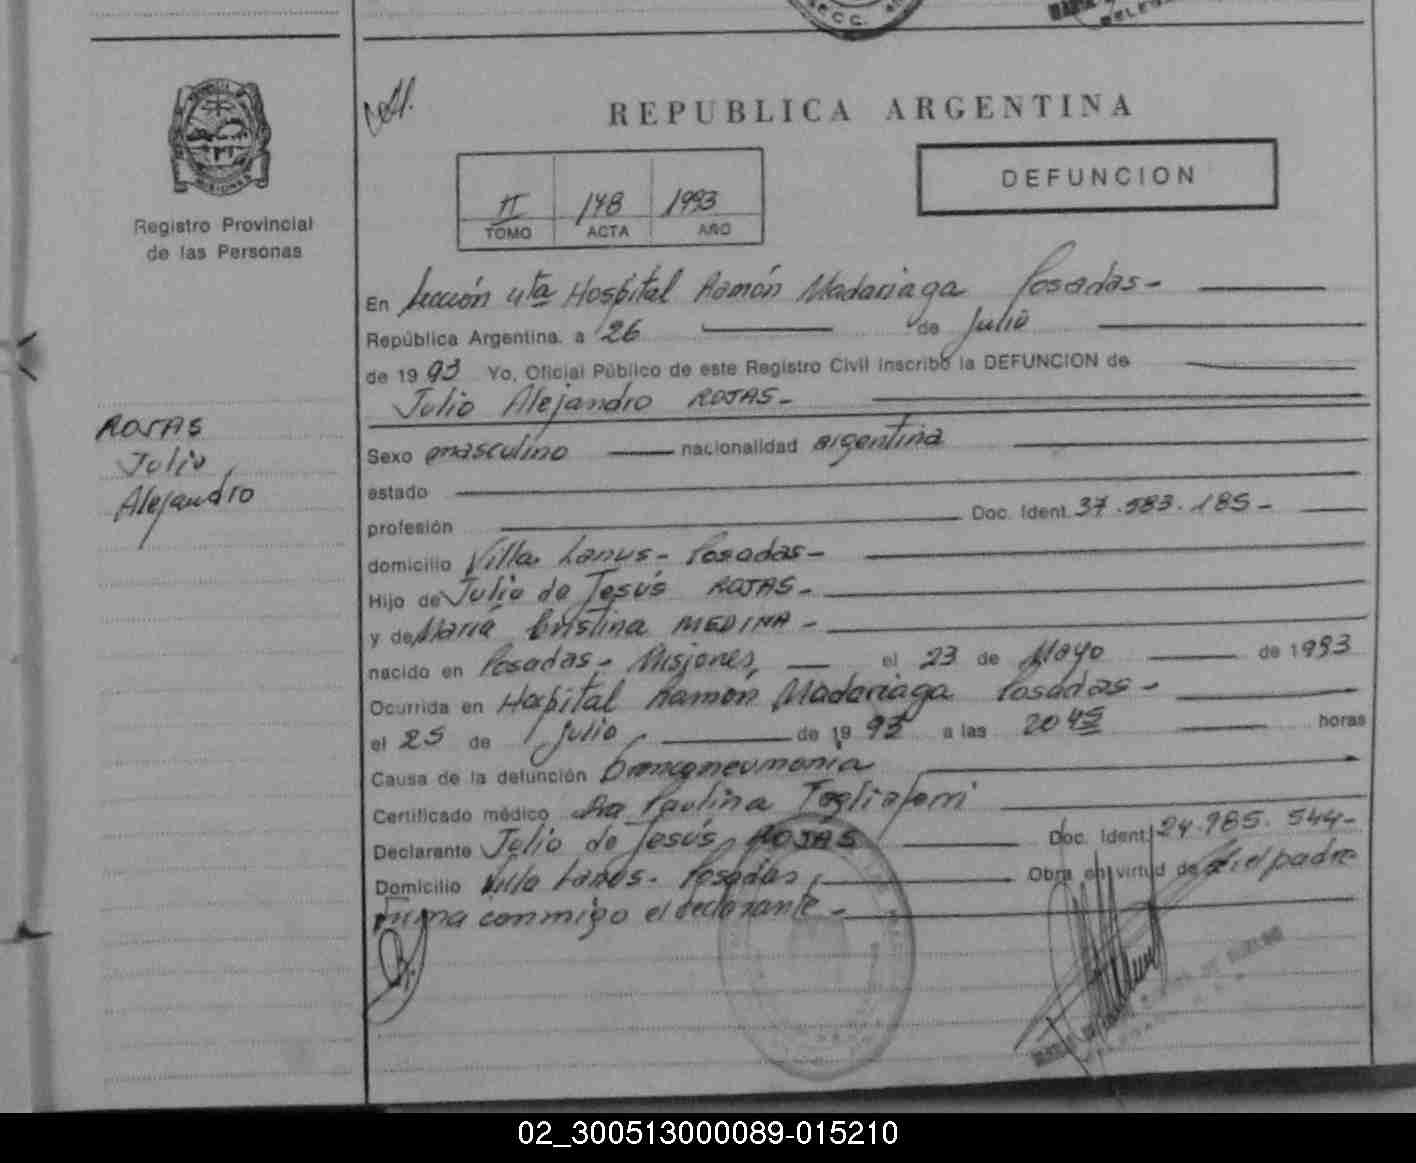 SECC.
REPUBLICA ARGENTINA
DEFUNCION
II 148 1993
TOMO ACTA AÑO
MISIONES
Registro Provincial
de las Personas
En Sección 4ta Hospital Ramón Madariaga Posadas-
República Argentina, a 26 de Julio
de 1993 Yo, Oficial Público de este Registro Civil inscribo la DEFUNCION de
Julio Alejandro ROJAS-
ROJAS
Julio
Alejandro
Sexo masculino nacionalidad argentina
estado
profesión Doc. Ident. 37.583.185-
domicilio Villa Lanus- Posadas-
Hijo de Julio de Jesús ROJAS-
y de María Cristina MEDINA-
nacido en Posadas- Misiones, el 23 de Mayo de 1993
Ocurrida en Hospital Ramón Madariaga Posadas-
el 25 de julio de 1993 a las 20 45 horas
Causa de la defunción bronconeumonía
Certificado médico Dra Paulina Togliaferri
Declarante Julio de Jesús ROJAS Doc. Ident. 24.985.544-
Domicilio Villa Lanus- Posadas, Obra en virtud de ser el padre
Firma conmigo el declarante-
02_300513000089-015210